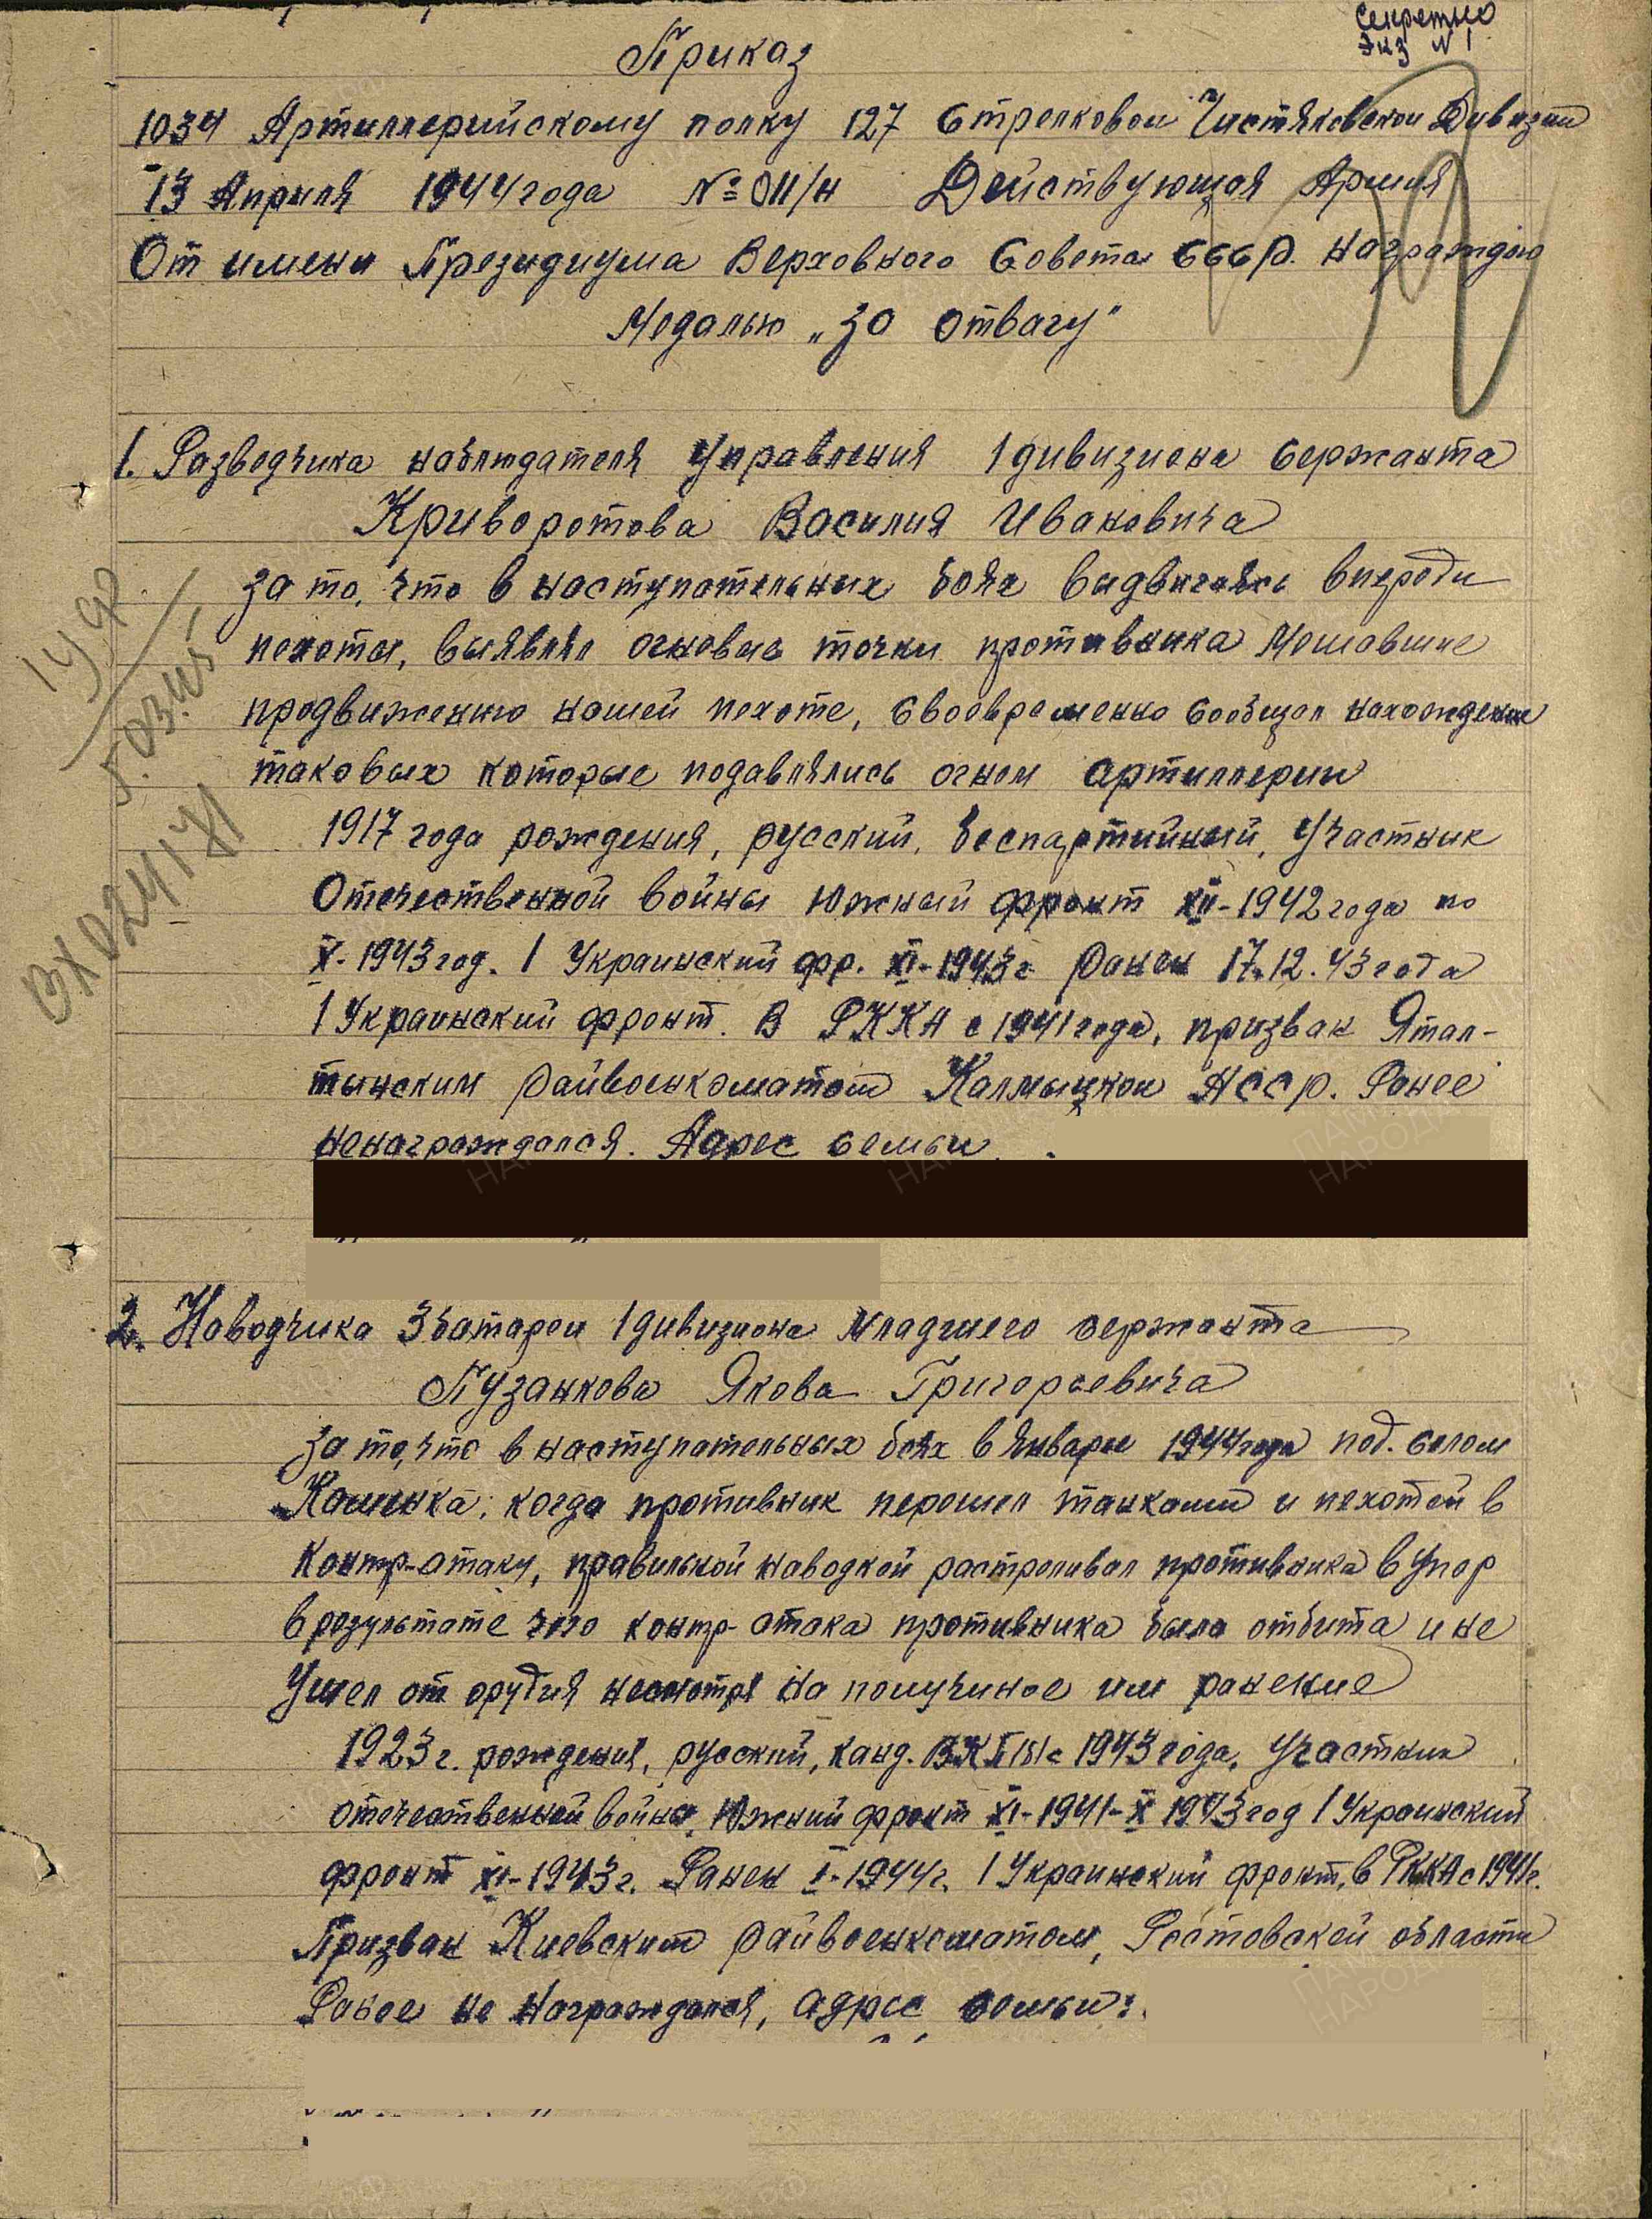 Секретно
Экз N 1
Приказ
1034 Артиллерийскому полку 127 Стрелковой Чистяковской Дивизии
13 Апреля 1944 года № 011/н Действующая Армия
От имени Президиума Верховного Совета СССР. награждаю
Медалью „За отвагу"
1. Разведчика наблюдателя Управления 1 дивизиона Сержанта
Криворотова Василия Ивановича
за то, что в наступательных боях выдвигаясь впереди
пехоты, выявлял огневые точки противника Мешавшие
продвижению нашей пехоте, своевременно сообщал нахождение
таковых которые подавлялись огнем артиллерии
1917 года рождения, русский, беспартийный, Участник
Отечественной войны Южный фронт XII-1942 года по
X-1943 год. 1 Украинский фр. XI-1943 г. Ранен 17.12.43 года
1 Украинский фронт. В РККА с 1941 года, призван Ятал-
тынским райвоенкоматом Калмыцкой АССР. Ранее
ненаграждался. Адрес семьи
2. Наводчика 3 батареи 1 дивизиона Младшего сержанта
Пузанкова Якова Григорьевича
за то, что в наступательных боях в Январе 1944 года под. селом
Каменка, когда противник перешел танками и пехотой в
Контр-атаку, правильной наводкой растреливал противника в упор
в результате чего контр-атака противника была отбита и не
Ушел от орудия несмотря на полученое им ранение
1923 г. рождения, русский, канд. ВКП/б/ с 1943 года, Участник
отечественной войны, Южный фронт XI-1941-X 1943 год 1 Украинский
фронт XI-1943 г. Ранен I-1944 г. 1 Украинский фронт, в РККА с 1941 г.
Призван Киевским райвоенкоматом, Ростовской области
Ранее не Награждался, адрес семьи: